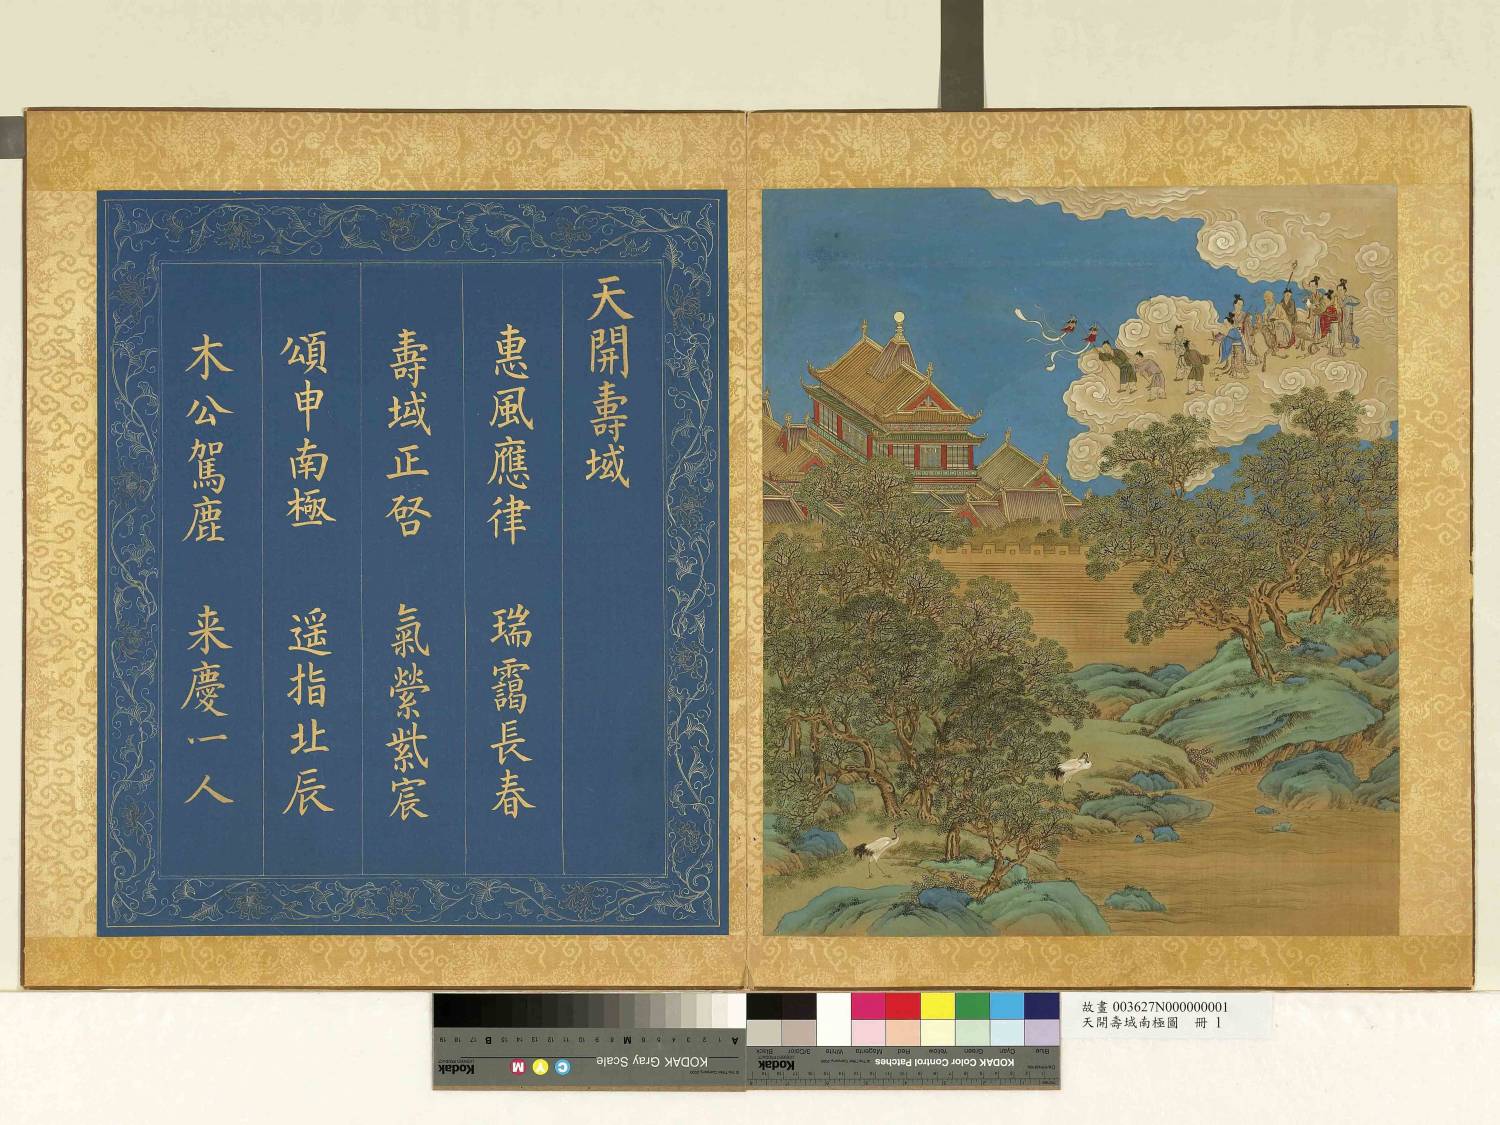 天開壽域
惠風應律 瑞靄長春
壽域正啓 氣縈紫宸
頌申南極 遥指北辰
木公駕鹿 来慶一人
故畫 003627N000000001
天開壽域南極圖 冊 1
KODAK Gray Scale
Kodak
C Y M
A 1 2 3 4 5 6 M 8 9 10 11 12 13 14 15 B 17 18 19
KODAK Color Control Patches
Kodak
Blue Cyan Green Yellow Red Magenta White 3/Color Black